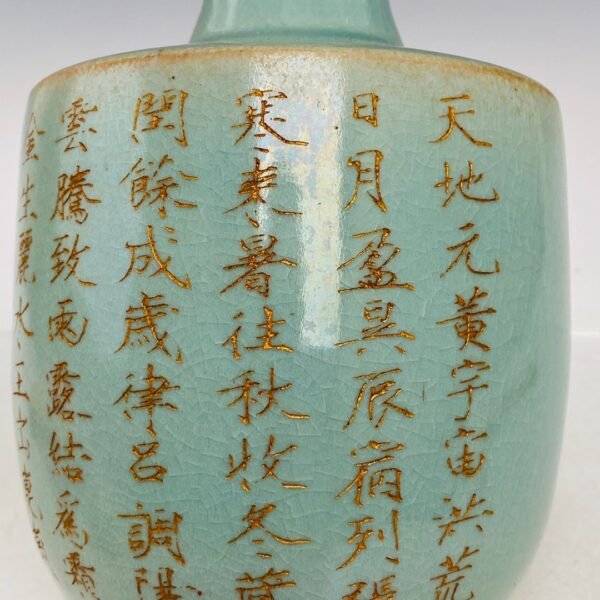 天地元黃宇宙洪荒
日月盈昃辰宿列張
寒来暑往秋收冬藏
閏餘成歲律呂調陽
雲騰致雨露結爲霜
金生麗水玉出崑